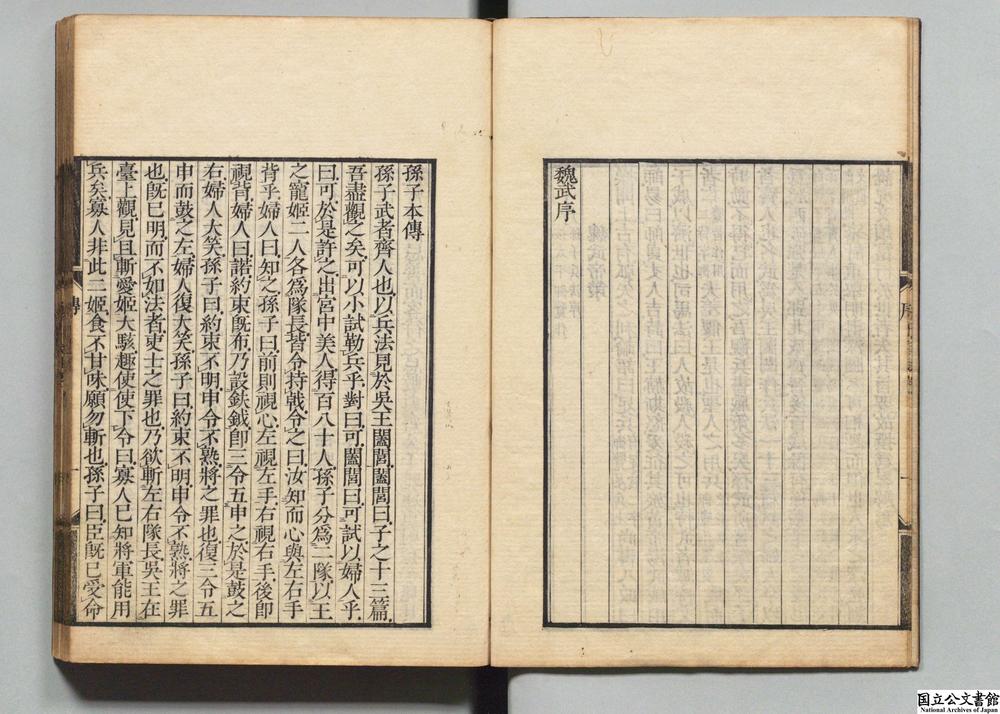 魏武序
序
孫子本傳
孫子武者齊人也以兵法見於吳王闔閭闔閭曰子之十三篇
吾盡觀之矣可以小試勒兵乎對曰可闔閭曰可試以婦人乎
曰可於是許之出宮中美人得百八十人孫子分爲二隊以王
之寵姬二人各爲隊長皆令持戟令之曰汝知而心與左右手
背乎婦人曰知之孫子曰前則視心左視左手右視右手後卽
視背婦人曰諾約束旣布乃設鈇鉞卽三令五申之於是鼓之
右婦人大笑孫子曰約束不明申令不熟將之罪也復三令五
申而鼓之左婦人復大笑孫子曰約束不明申令不熟將之罪
也旣已明而不如法者吏士之罪也乃欲斬左右隊長吳王在
臺上觀見且斬愛姬大駭趣使使下令曰寡人已知將軍能用
兵矣寡人非此二姬食不甘味願勿斬也孫子曰臣旣已受命
傳
国立公文書館
National Archives of Japan